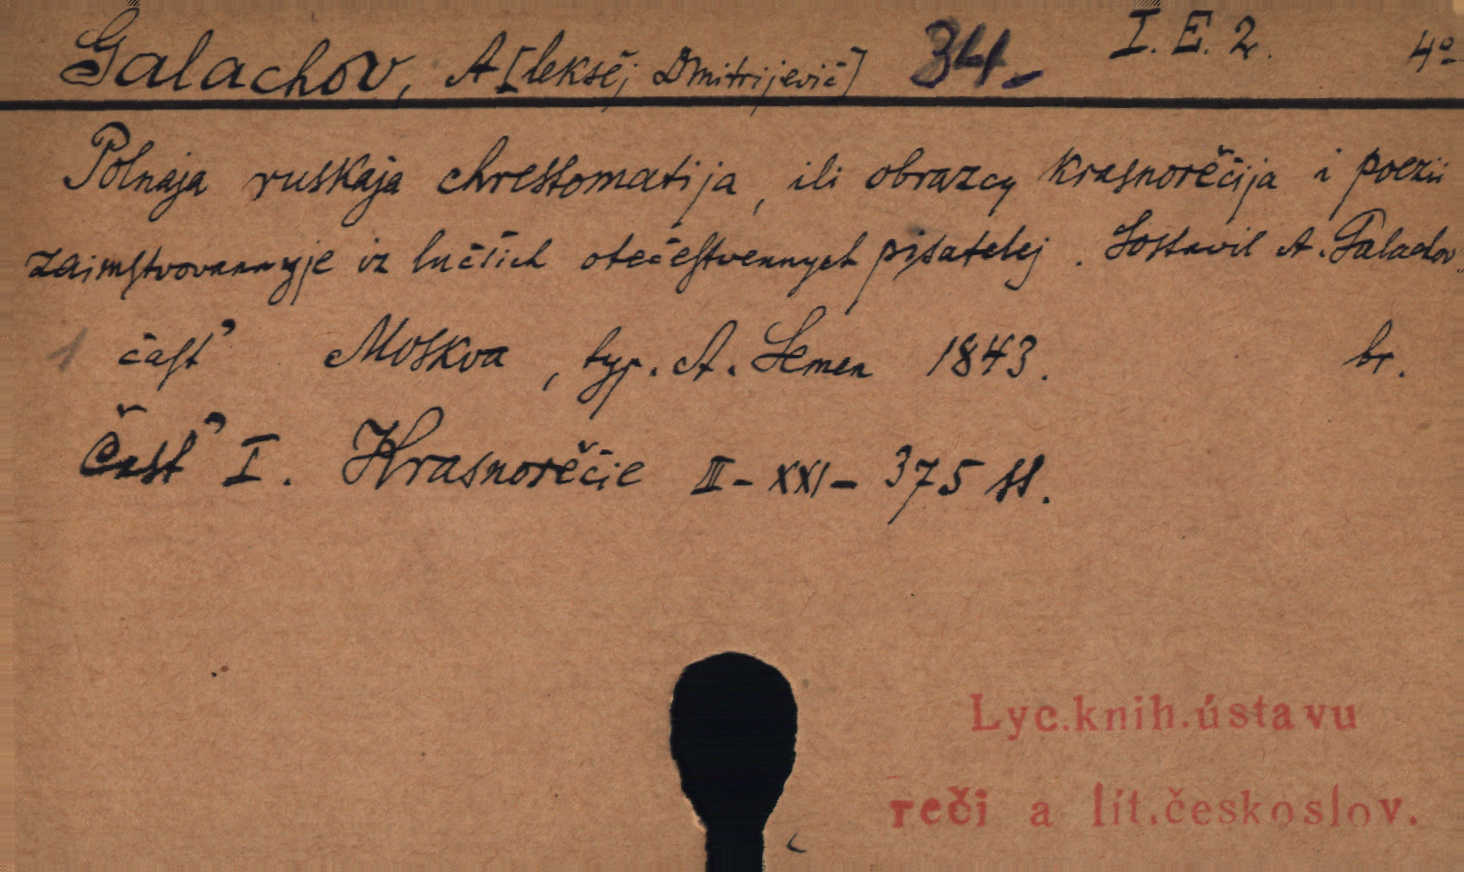 Galachov, A[leksěj Dmitrijevič] 34- I. E. 2. 4°
Polnaja ruskaja chrestomatija, ili obrazcy krasnorěčija i poezii
zaimstvovannyje iz lučšich otečestvennych pisatelej. Sostavil A. Galachov.
1 časť Moskva, typ. A. Semen 1843. br.
Časť I. Krasnorěčie II-XXI-375 ss.
Lyc.knih.ústavu
reči a lit.českoslov.